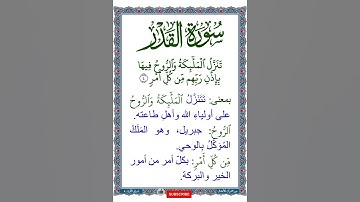 سُورَةُ القَدْرِ
تَنَزَّلُ الْمَلَٰٓئِكَةُ وَالرُّوحُ فِيهَا
بِإِذْنِ رَبِّهِم مِّن كُلِّ أَمْرٍ ٤
بمعنى: تَتَنَزَّلُ الْمَلَٰٓئِكَةُ وَالرُّوحُ
على أولياءِ الله وأهلِ طاعته.
الرُّوحُ: جبريل، وهو المَلَكُ
المُوَكَّلُ بالوحي.
مِّن كُلِّ أَمْرٍ: بكلِّ أمرٍ من أمور
الخير والبركة.
SUBSCRIBE